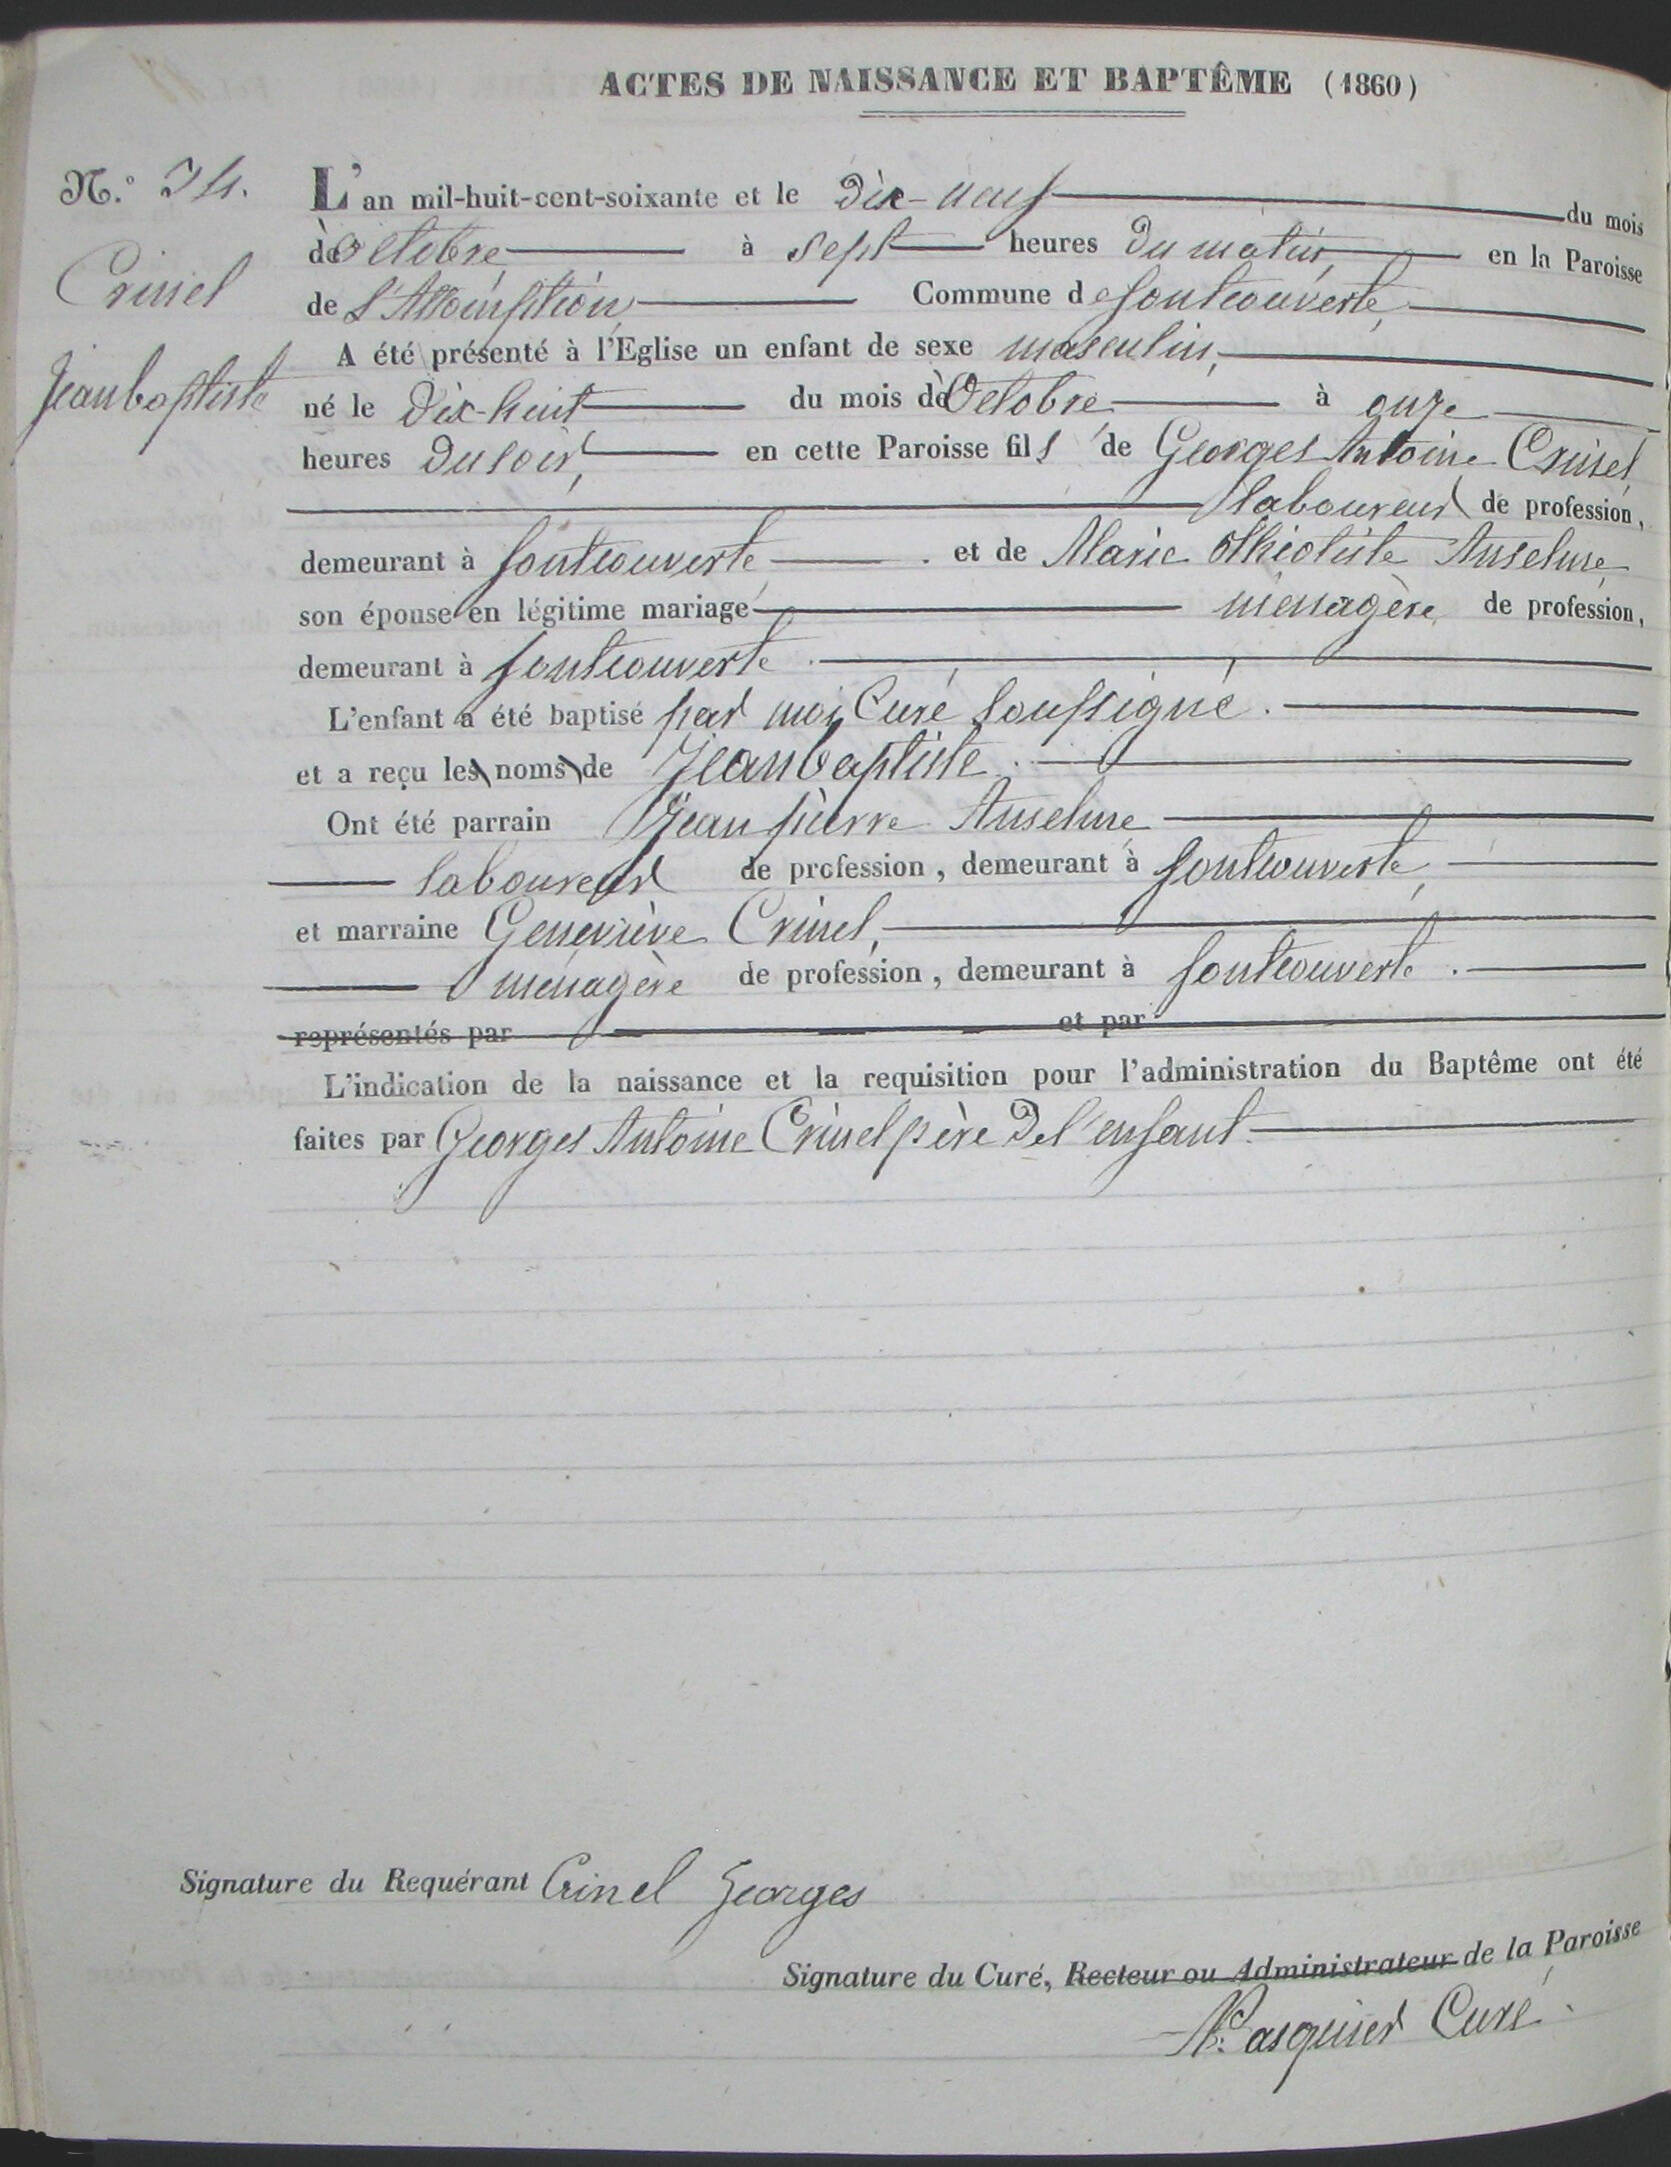 ACTES DE NAISSANCE ET BAPTÊME (1860)
N.º 34.
Crinel
Jeanbaptiste
L'an mil-huit-cent-soixante et le Dix-neuf du mois
d'Octobre à Sept heures Du matin, en la Paroisse
de l'Assomption Commune de fontcouverte,
A été présenté à l'Eglise un enfant de sexe masculin,
né le Dix-huit du mois d'Octobre à onze
heures Du soir, en cette Paroisse fils de Georges Antoine Crinel,
laboureur de profession,
demeurant à fontcouverte et de Marie Anselme
son épouse en légitime mariage ménagère de profession,
demeurant à fontcouverte.
L'enfant a été baptisé par moi Curé soussigné.
et a reçu les noms de Jeanbaptiste.
Ont été parrain Jean pierre Anselme
laboureur de profession, demeurant à fontcouverte,
et marraine Geneviève Crinel,
ménagère de profession, demeurant à fontcouverte.
représentés par et par
L'indication de la naissance et la requisition pour l'administration du Baptême ont été
faites par Georges Antoine Crinel père De l'enfant.
Signature du Requérant Crinel Georges
Signature du Curé, Recteur ou Administrateur de la Paroisse
Pasquier Curé